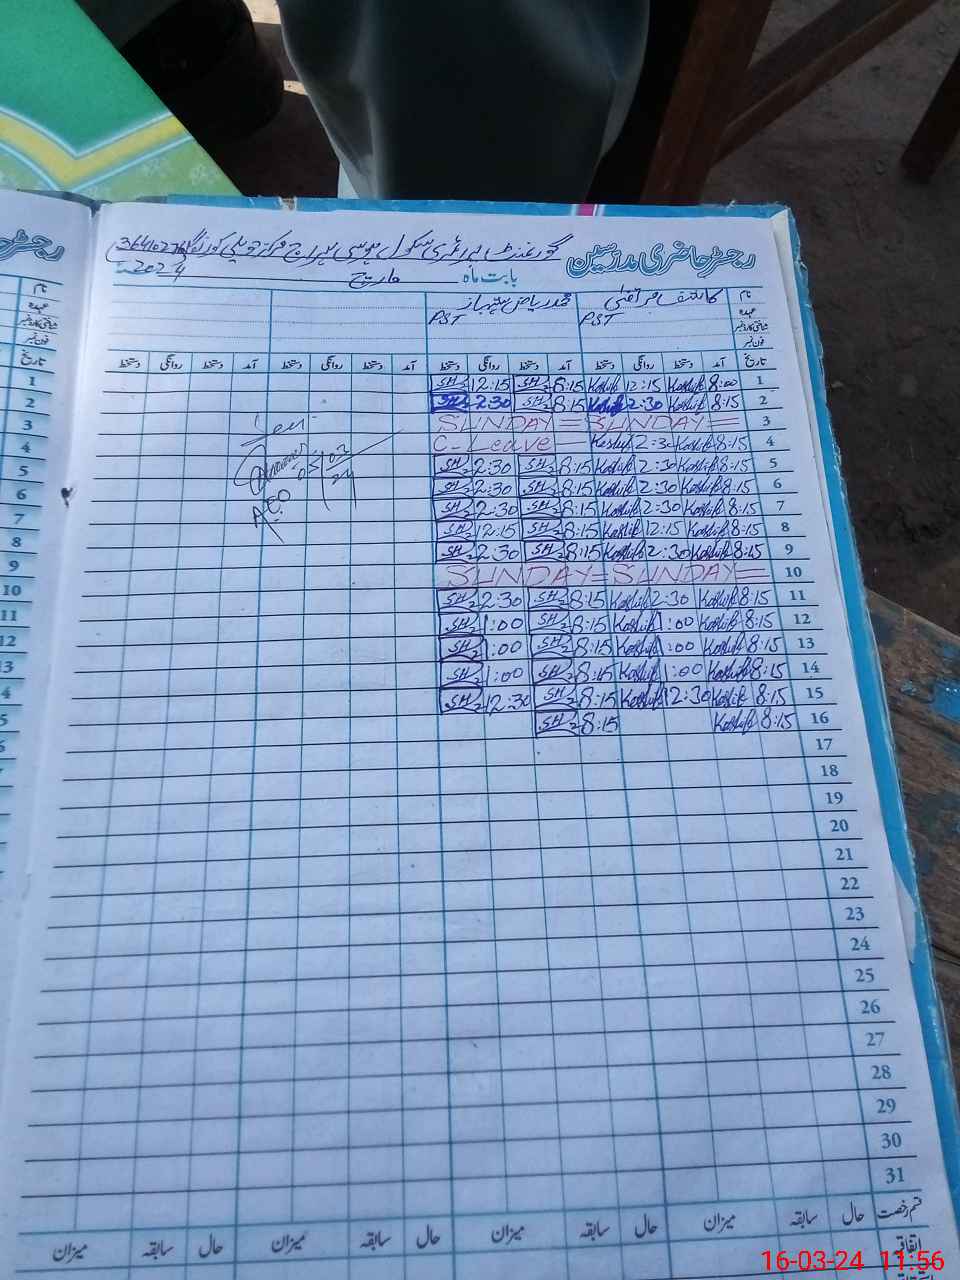 رجسٹر حاضری مدرسین
گورنمنٹ پرائمری سکول موسیٰ
بابت ماہ مارچ 2024
نام کاشف مرتضیٰ محمد ریاض شہباز
عہدہ PST PST
شناختی کارڈ نمبر
فون نمبر
تاریخ آمد دستخط روانگی دستخط آمد دستخط روانگی دستخط آمد دستخط روانگی دستخط آمد دستخط روانگی دستخط
SH 12:15 SH 8:15 Kashif 12:15 Kashif 8:00 1
SH 2:30 SH 8:15 Kashif 2:30 Kashif 8:15 2
SUNDAY = SUNDAY = 3
C-Leave — Kashif 2:30 Kashif 8:15 4
SH 2:30 SH 8:15 Kashif 2:30 Kashif 8:15 5
SH 2:30 SH 8:15 Kashif 2:30 Kashif 8:15 6
SH 2:30 SH 8:15 Kashif 2:30 Kashif 8:15 7
SH 12:15 SH 8:15 Kashif 12:15 Kashif 8:15 8
SH 2:30 SH 8:15 Kashif 2:30 Kashif 8:15 9
SUNDAY = SUNDAY = 10
SH 2:30 SH 8:15 Kashif 2:30 Kashif 8:15 11
SH 1:00 SH 8:15 Kashif 1:00 Kashif 8:15 12
SH 1:00 SH 8:15 Kashif 1:00 Kashif 8:15 13
SH 1:00 SH 8:15 Kashif 1:00 Kashif 8:15 14
SH 12:30 SH 8:15 Kashif 12:30 Kashif 8:15 15
SH 8:15 Kashif 8:15 16
17
18
19
20
21
22
23
24
25
26
27
28
29
30
31
قسم رخصت حال سابقہ میزان حال سابقہ میزان حال سابقہ میزان حال سابقہ میزان
اتفاقیہ
AEO
16-03-24 11:56